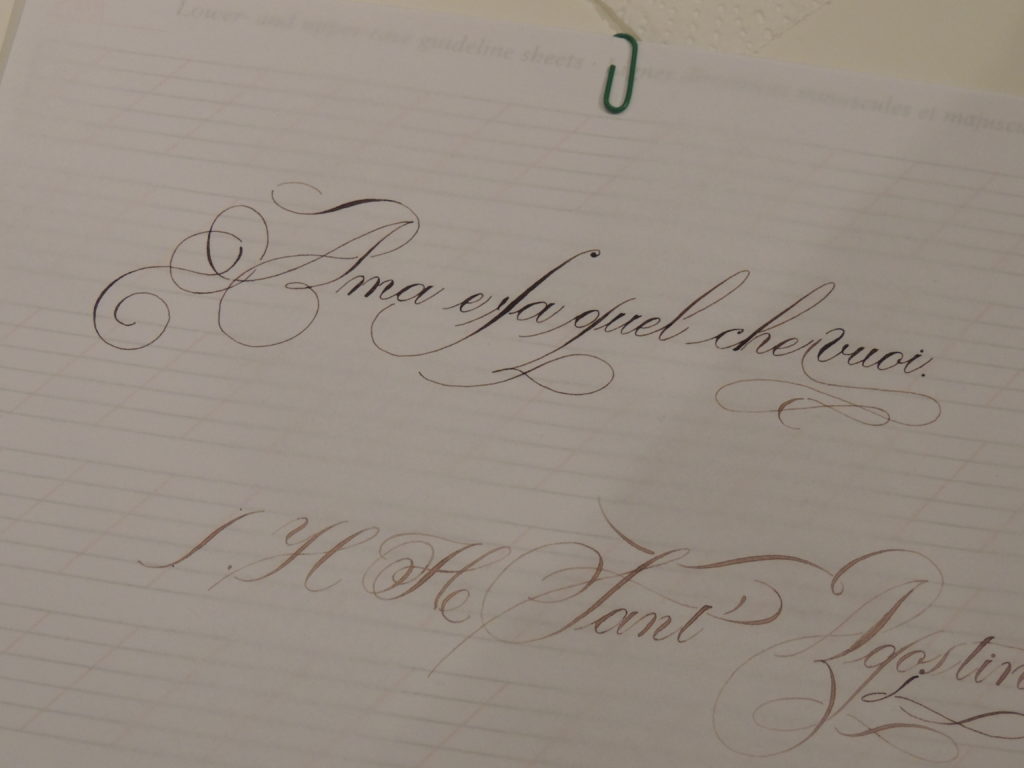 Lower- and upper case guideline sheets · minuscules et majuscu
Ama e fa quel che vuoi.
S. H H Sant' Agostin